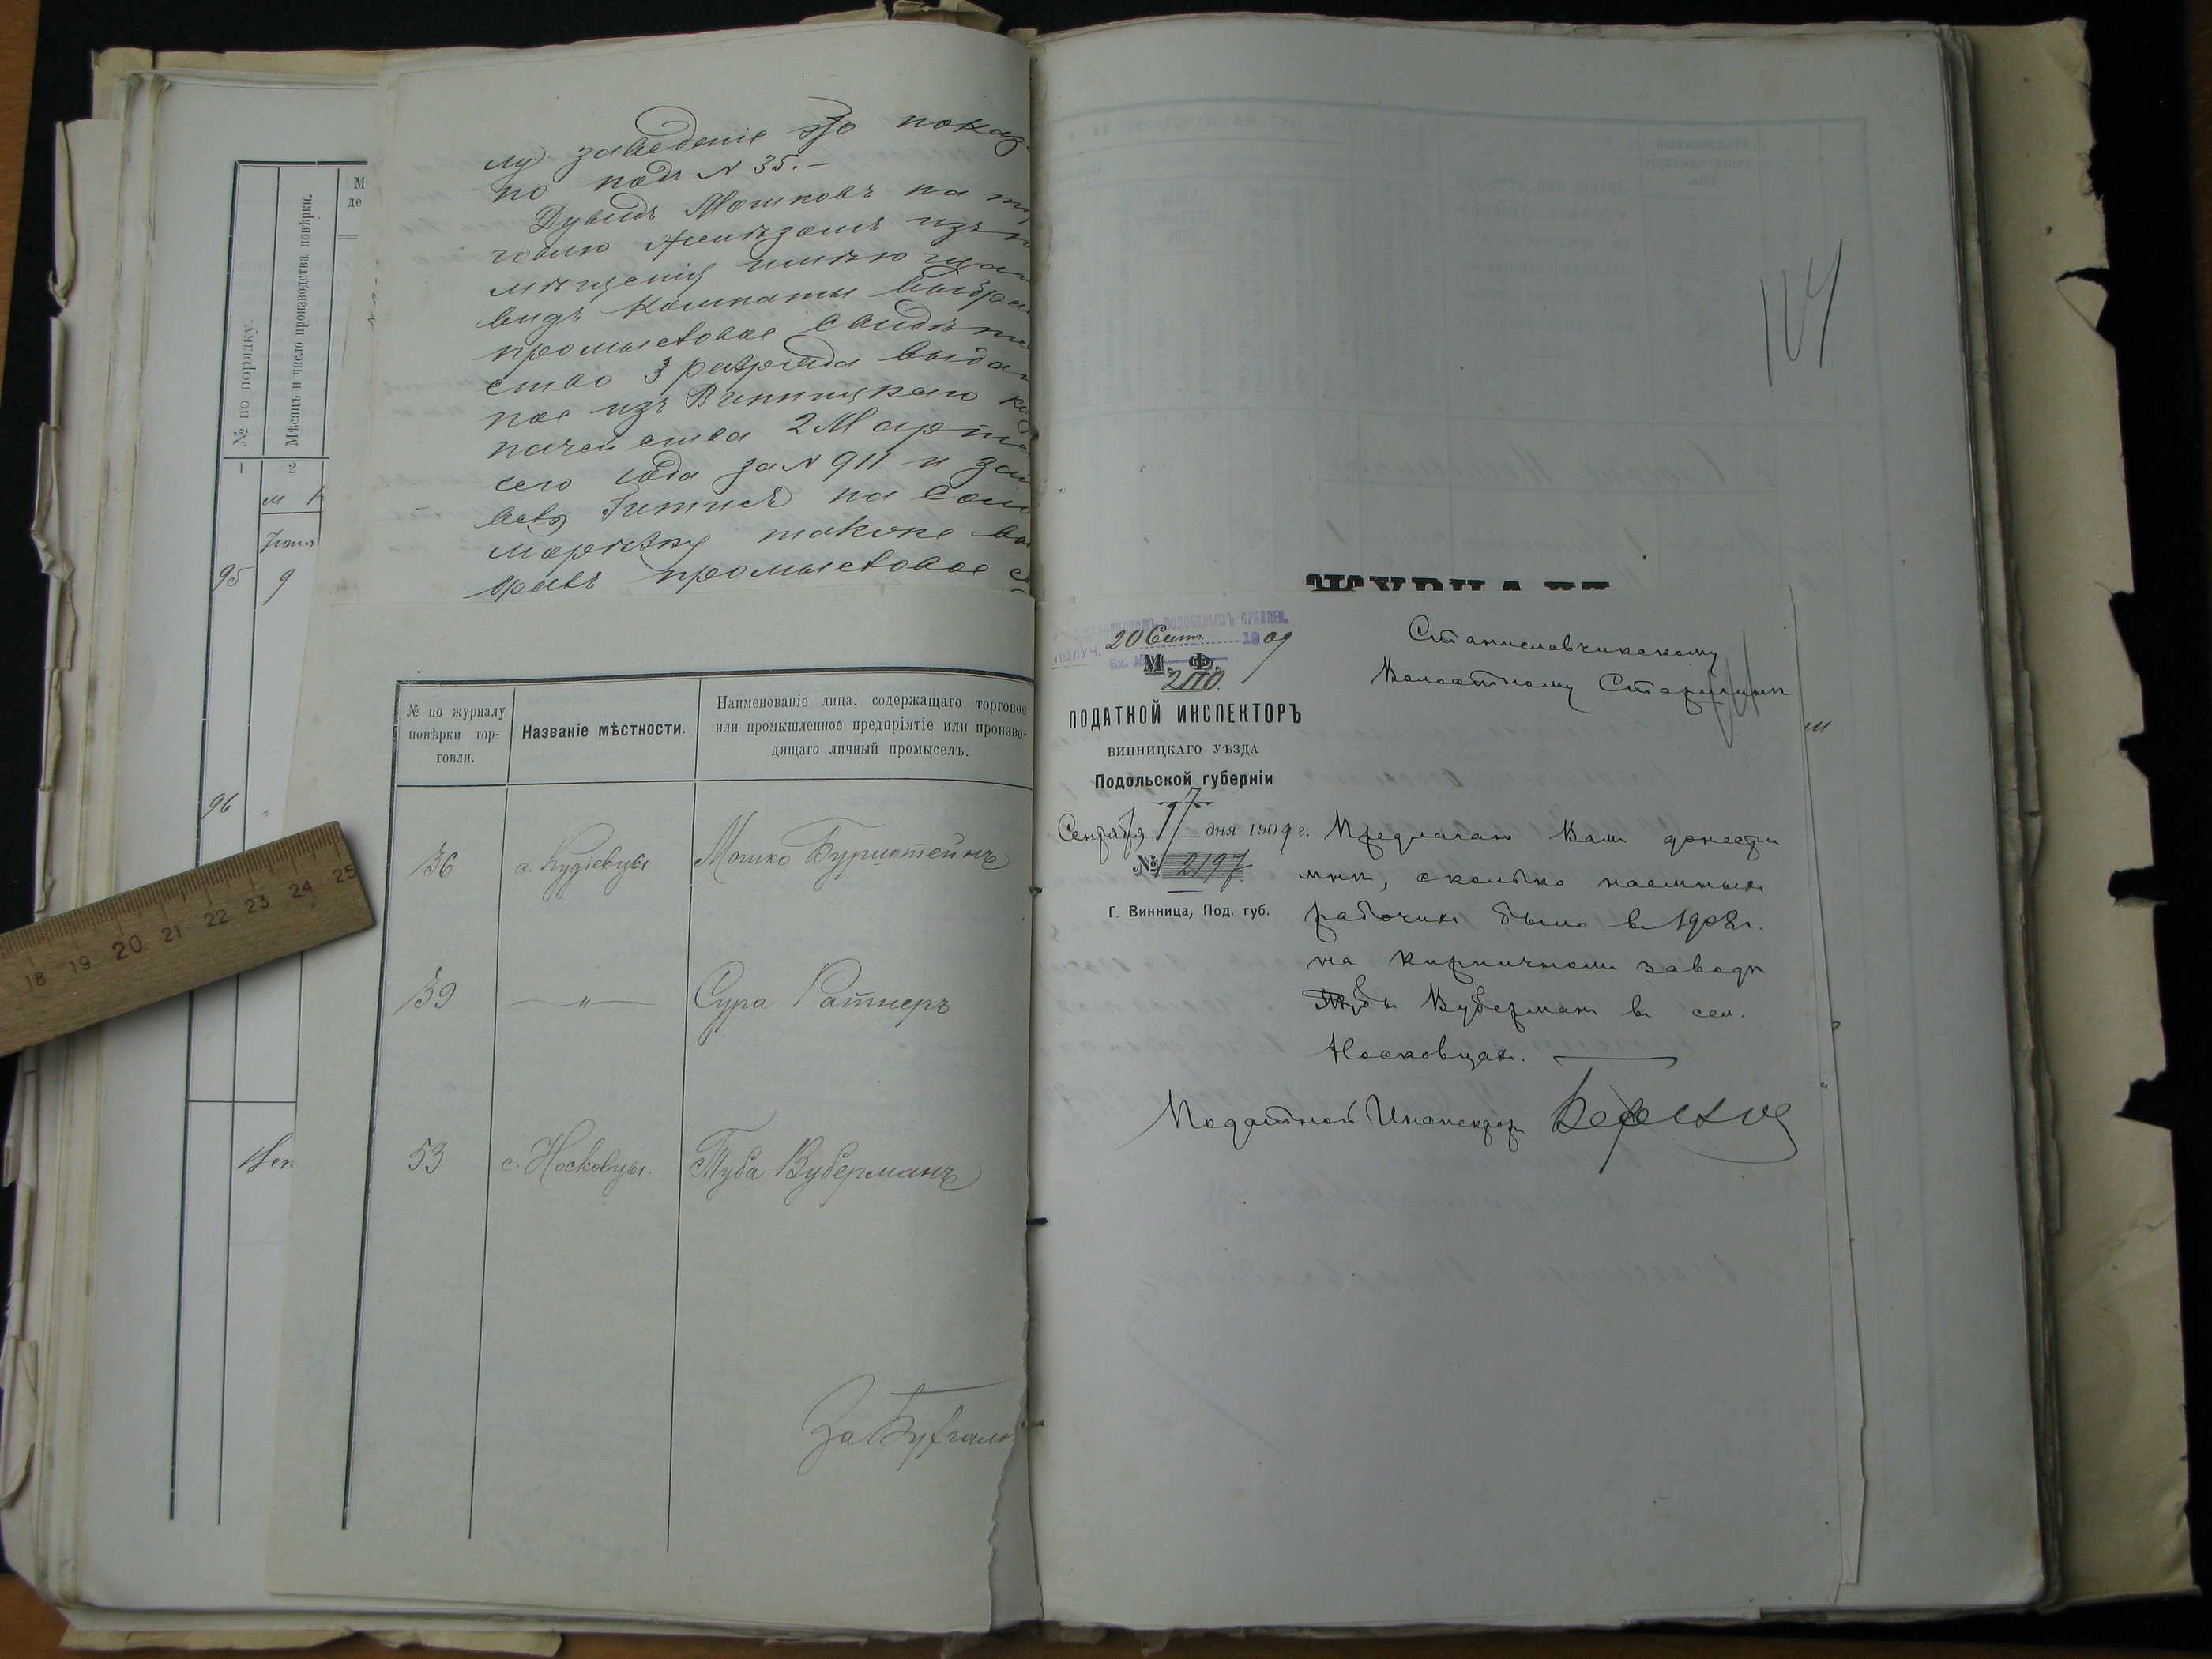 № по порядку.
Мѣсяцъ и число производства повѣрки.
М
де
1
2
95
9
96
лу заведенiе это показ-
но подъ N 35.–
Дувидъ Мошковъ на
говлю желѣзомъ изъ
мѣщенiя
видъ комнаты выбра
промысловое свидѣте
ство 3 разряда выдан
ное изъ Винницкаго ка
начейства 2 Марта
сего года за N 911 и
на
также вы
бравъ промысловое с
№ по журналу
повѣрки тор-
говли.
Названiе мѣстности.
Наименованiе лица, содержащаго торговое
или промышленное предпрiятiе или произво-
дящаго личный промыселъ.
36
с. Кудіевцы
Мошко Бурштейнъ
39
— " —
Сура Ратнеръ
53
с. Носковцы.
Туба Вуберманъ
За Бухгал
ЖУРНАЛЪ
ВОЛОСТНЫМЪ ПРАВЛЕН.
ПОЛУЧ. 20 Сент. 1909
Вх. №
2110
М. Ф.
ПОДАТНОЙ ИНСПЕКТОРЪ
ВИННИЦКАГО УѢЗДА
Подольской губернiи
Сентября 17 дня 1909 г.
№ 2197
Г. Винница, Под. губ.
Станиславчикскому
Волостному Старшинѣ
Предлагаю Вамъ донести
мнѣ, сколько наемныхъ
рабочихъ было въ 1908 г.
на кирпичномъ заводѣ
Тубы Вуберманъ въ сел.
Носковцахъ. —
Податной Инспекторъ